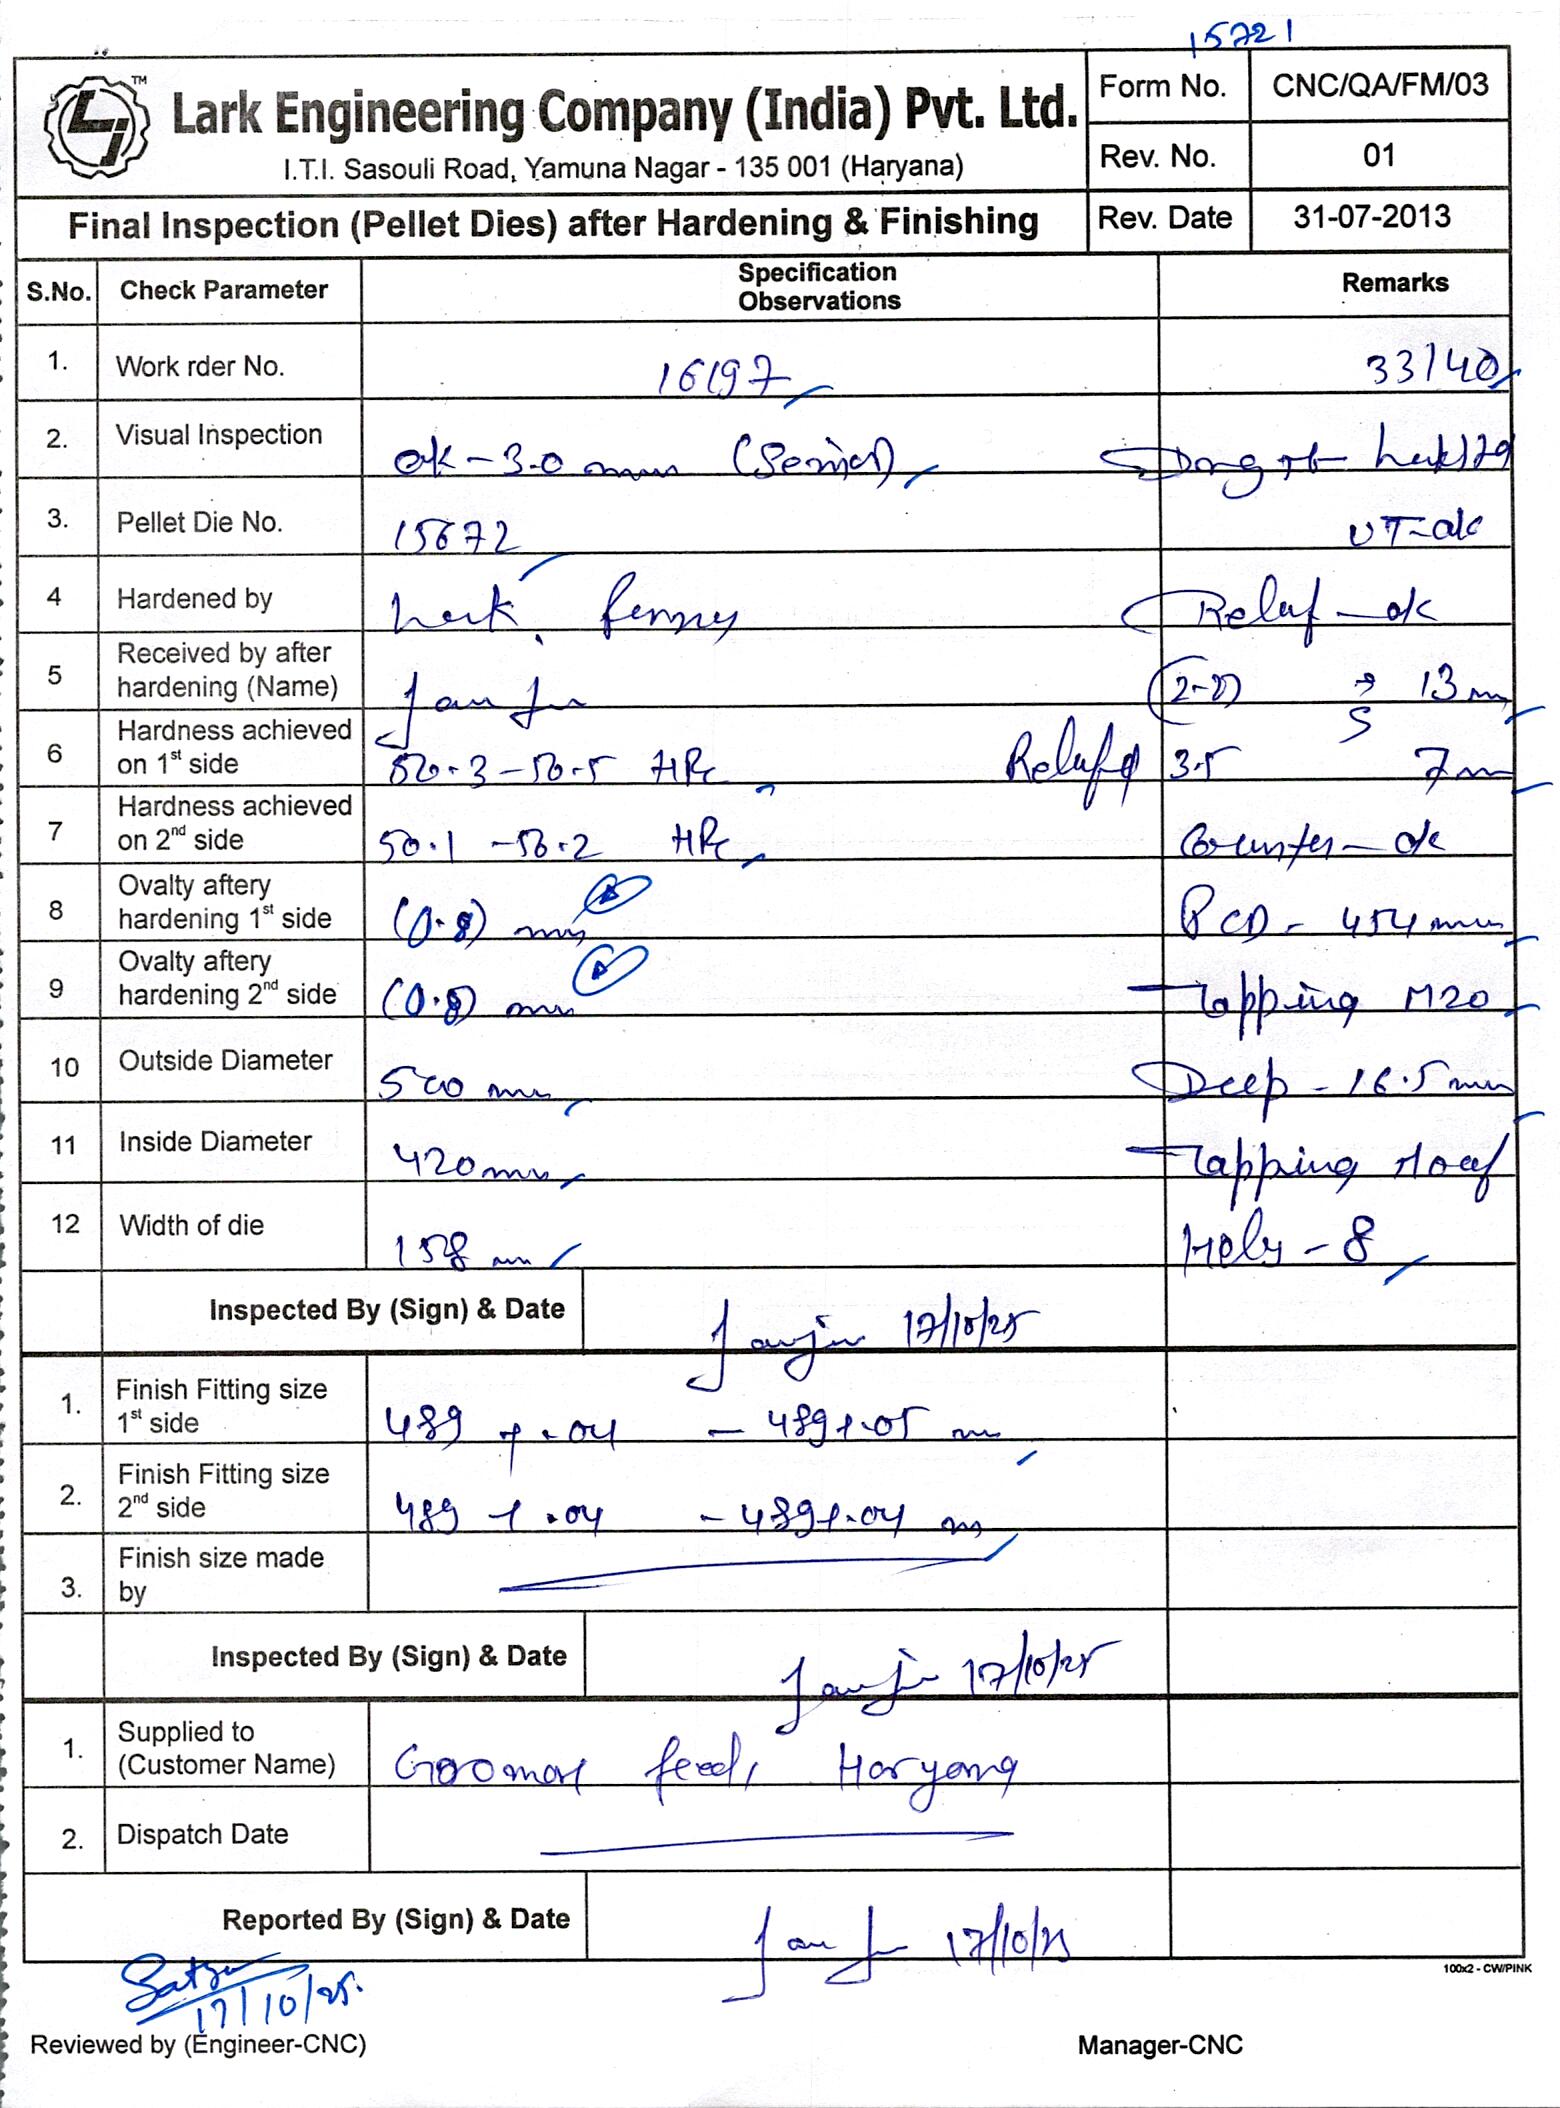 15721
Lark Engineering Company (India) Pvt. Ltd.
I.T.I. Sasouli Road, Yamuna Nagar - 135 001 (Haryana)
Form No. CNC/QA/FM/03
Rev. No. 01
Final Inspection (Pellet Dies) after Hardening & Finishing
Rev. Date 31-07-2013
S.No. Check Parameter Specification Observations Remarks
1. Work rder No. 16197 33140
2. Visual Inspection ok - 3.0 mm
3. Pellet Die No. 15672 UT-ok
4 Hardened by Relief - ok
5 Received by after hardening (Name) 13 mm
6 Hardness achieved on 1st side HRc 3.5 7 mm
7 Hardness achieved on 2nd side 50.1 - 50.2 HRc Counter - ok
8 Ovalty aftery hardening 1st side (0.8) mm PCD - 454 mm
9 Ovalty aftery hardening 2nd side (0.8) mm Tapping M20
10 Outside Diameter 500 mm Deep - 16.5 mm
11 Inside Diameter 420 mm Tapping
12 Width of die 158 mm - 8
Inspected By (Sign) & Date 17/10/25
1. Finish Fitting size 1st side 489 +.04 - 489+.05 mm
2. Finish Fitting size 2nd side 489 +.04 - 489+.04 mm
3. Finish size made by
Inspected By (Sign) & Date 17/10/25
1. Supplied to (Customer Name) feeds Haryana
2. Dispatch Date
Reported By (Sign) & Date 17/10/25
100x2 - CW/PINK
17/10/25.
Reviewed by (Engineer-CNC) Manager-CNC